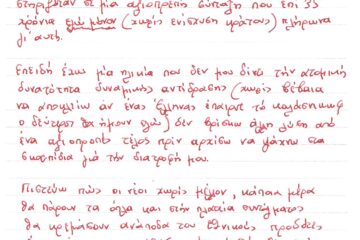 στηριζόταν σε μία αξιοπρεπή σύνταξη που επί 35
χρόνια εγώ μόνον (χωρίς ενίσχυση κράτους) πλήρωνα
γι' αυτή.
Επειδή έχω μία ηλικία που δεν μου δίνει την ατομική
δυνατότητα δυναμικής αντίδρασης (χωρίς βέβαια
να αποκλείω αν ένας έλληνας έπαιρνε το καλάσνικωφ
ο δεύτερος θα ήμουν εγώ) δεν βρίσκω άλλη λύση από
ένα αξιοπρεπές τέλος πριν αρχίσω να ψάχνω στα
σκουπίδια για την διατροφή μου.
Πιστεύω πως οι νέοι χωρίς μέλλον, κάποια μέρα
θα πάρουν τα όπλα και στην πλατεία συντάγματος
θα κρεμάσουν ανάποδα τους εθνικούς προδότες